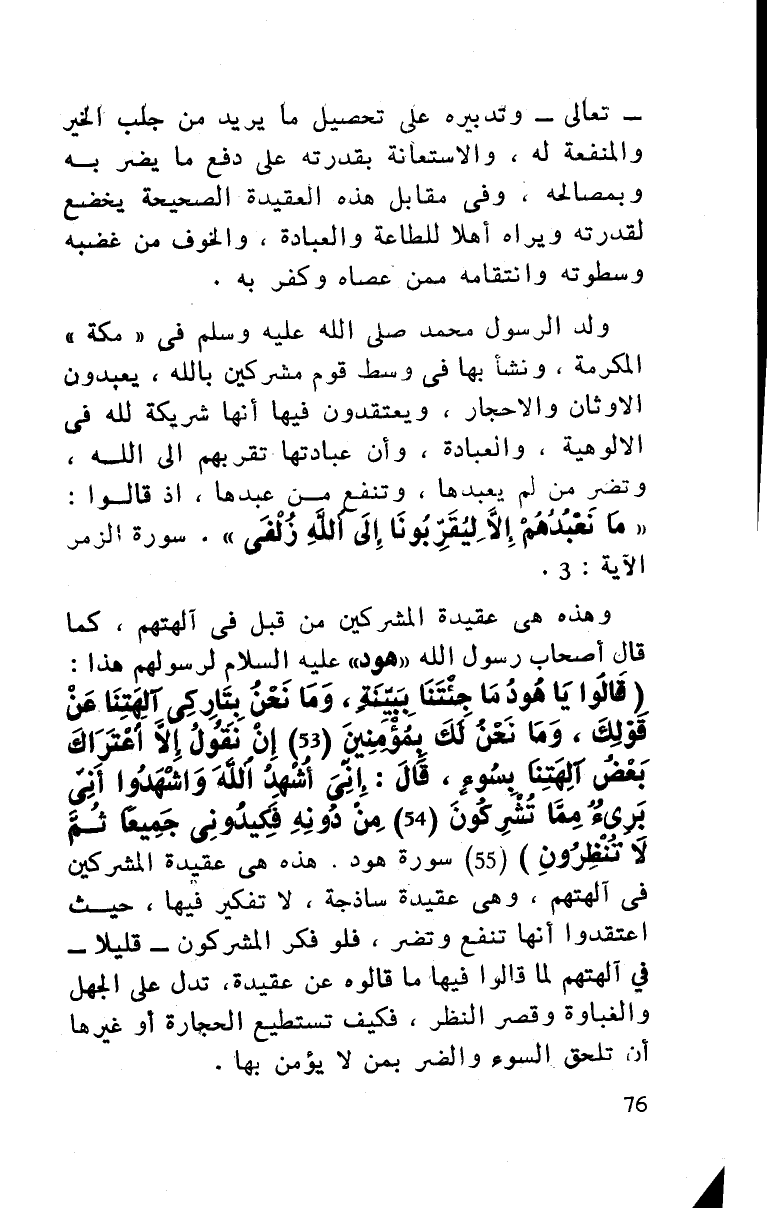 ـ تعالى ـ وتدبيره على تحصيل ما يريد من جلب الخير
والمنفعة له ، والاستعانة بقدرته على دفع ما يضر بـه
وبمصالحه ، وفى مقابل هذه العقيدة الصحيحة يخضع
لقدرته ويراه أهلا للطاعة والعبادة ، والخوف من غضبه
وسطوته وانتقامه ممن عصاه وكفر به .
ولد الرسول محمد صلى الله عليه وسلم فى « مكة »
المكرمة ، ونشأ بها فى وسط قوم مشركين بالله ، يعبدون
الاوثان والاحجار ، ويعتقدون فيها أنها شريكة لله فى
الالوهية ، والعبادة ، وأن عبادتها تقربهم الى اللـه ،
وتضر من لم يعبدها ، وتنفع مـن عبدها ، اذ قالـوا :
« مَا نَعْبُدُهُمْ إِلاَّ لِيُقَرِّبُونَا إِلَى ٱللَّهِ زُلْفَى » . سورة الزمر
الآية : 3 .
وهذه هى عقيدة المشركين من قبل فى آلهتهم ، كما
قال أصحاب رسول الله «هود» عليه السلام لرسولهم هذا :
( قَالُوا يَا هُودُ مَا جِئْتَنَا بِبَيِّنَةٍ ، وَمَا نَحْنُ بِتَارِكِى آلِهَتِنَا عَنْ
قَوْلِكَ ، وَمَا نَحْنُ لَكَ بِمُؤْمِنِينَ (53) إِنْ نَقُولُ إِلاَّ ٱعْتَرَاكَ
بَعْضُ آلِهَتِنَا بِسُوءٍ ، قَالَ : إِنِّيَ أُشْهِدُ ٱللَّهَ وَاشْهَدُوا أَنِّى
بَرِيءٌ مِمَّا تُشْرِكُونَ (54) مِنْ دُونِهِ فَكِيدُونِى جَمِيعًا ثُـمَّ
لَا تُنْظِرُونِ ) (55) سورة هود . هذه هى عقيدة المشركين
فى آلهتهم ، وهى عقيدة ساذجة ، لا تفكير فيها ، حيـث
اعتقدوا أنها تنفع وتضر ، فلو فكر المشركون ـ قليلا ـ
في آلهتهم لما قالوا فيها ما قالوه عن عقيدة، تدل على الجهل
والغباوة وقصر النظر ، فكيف تستطيع الحجارة أو غيرها
أن تلحق السوء والضر بمن لا يؤمن بها .
76